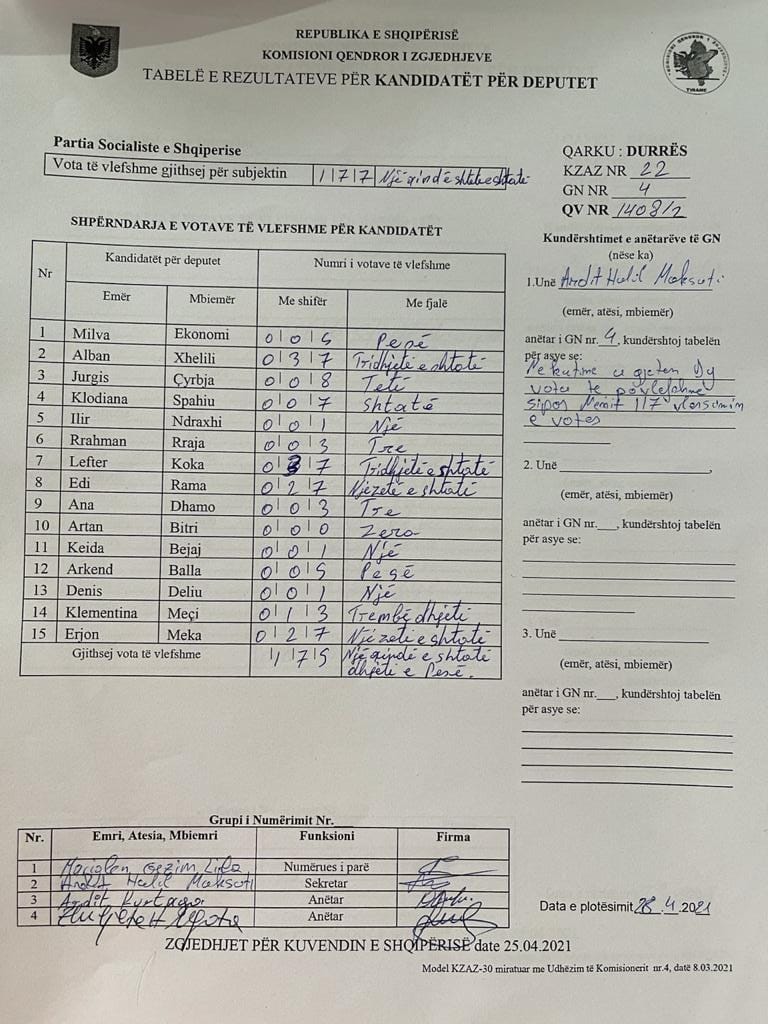 REPUBLIKA E SHQIPËRISË
KOMISIONI QENDROR I ZGJEDHJEVE
TABELË E REZULTATEVE PËR KANDIDATËT PËR DEPUTET
Partia Socialiste e Shqiperise
Vota të vlefshme gjithsej për subjektin 1|7|7 Një qind e shtatë e shtatë
QARKU : DURRËS
KZAZ NR 22
GN NR 4
QV NR 1408/2
SHPËRNDARJA E VOTAVE TË VLEFSHME PËR KANDIDATËT
Nr Kandidatët për deputet Numri i votave të vlefshme
Emër Mbiemër Me shifër Me fjalë
1 Milva Ekonomi 0|0|5 Pesë
2 Alban Xhelili 0|3|7 Tridhjetë e shtatë
3 Jurgis Çyrbja 0|0|8 Tetë
4 Klodiana Spahiu 0|0|7 Shtatë
5 Ilir Ndraxhi 0|0|1 Një
6 Rrahman Rraja 0|0|3 Tre
7 Lefter Koka 0|3|7 Tridhjetë e shtatë
8 Edi Rama 0|2|7 Njëzetë e shtatë
9 Ana Dhamo 0|0|3 Tre
10 Artan Bitri 0|0|0 Zero
11 Keida Bejaj 0|0|1 Një
12 Arkend Balla 0|0|5 Pesë
13 Denis Deliu 0|0|1 Një
14 Klementina Meçi 0|1|3 Trembëdhjetë
15 Erjon Meka 0|2|7 Njëzetë e shtatë
Gjithsej vota të vlefshme 1|7|5 Një qindë e shtatë
dhjetë e Pesë.
Kundërshtimet e anëtarëve të GN
(nëse ka)
1.Unë Ardit Halil Maksuti
(emër, atësi, mbiemër)
anëtar i GN nr. 4, kundërshtoj tabelën
për asye se:
Ne kutine u gjeten Dy
vota te pavlefshme
sipas Nenit 117 vlersimim
e votes
2. Unë ,
(emër, atësi, mbiemër)
anëtar i GN nr.___, kundërshtoj tabelën
për asye se:
3. Unë
(emër, atësi, mbiemër)
anëtar i GN nr.___, kundërshtoj tabelën
për asye se:
Grupi i Numërimit Nr.
Nr. Emri, Atesia, Mbiemri Funksioni Firma
1 Gezim Numërues i parë
2 Ardit Halil Maksuti Sekretar
3 Ardit Anëtar
4 Anëtar
Data e plotësimit 28.4.2021
ZGJEDHJET PËR KUVENDIN E SHQIPËRISË date 25.04.2021
Model KZAZ-30 miratuar me Udhëzim të Komisionerit nr.4, datë 8.03.2021